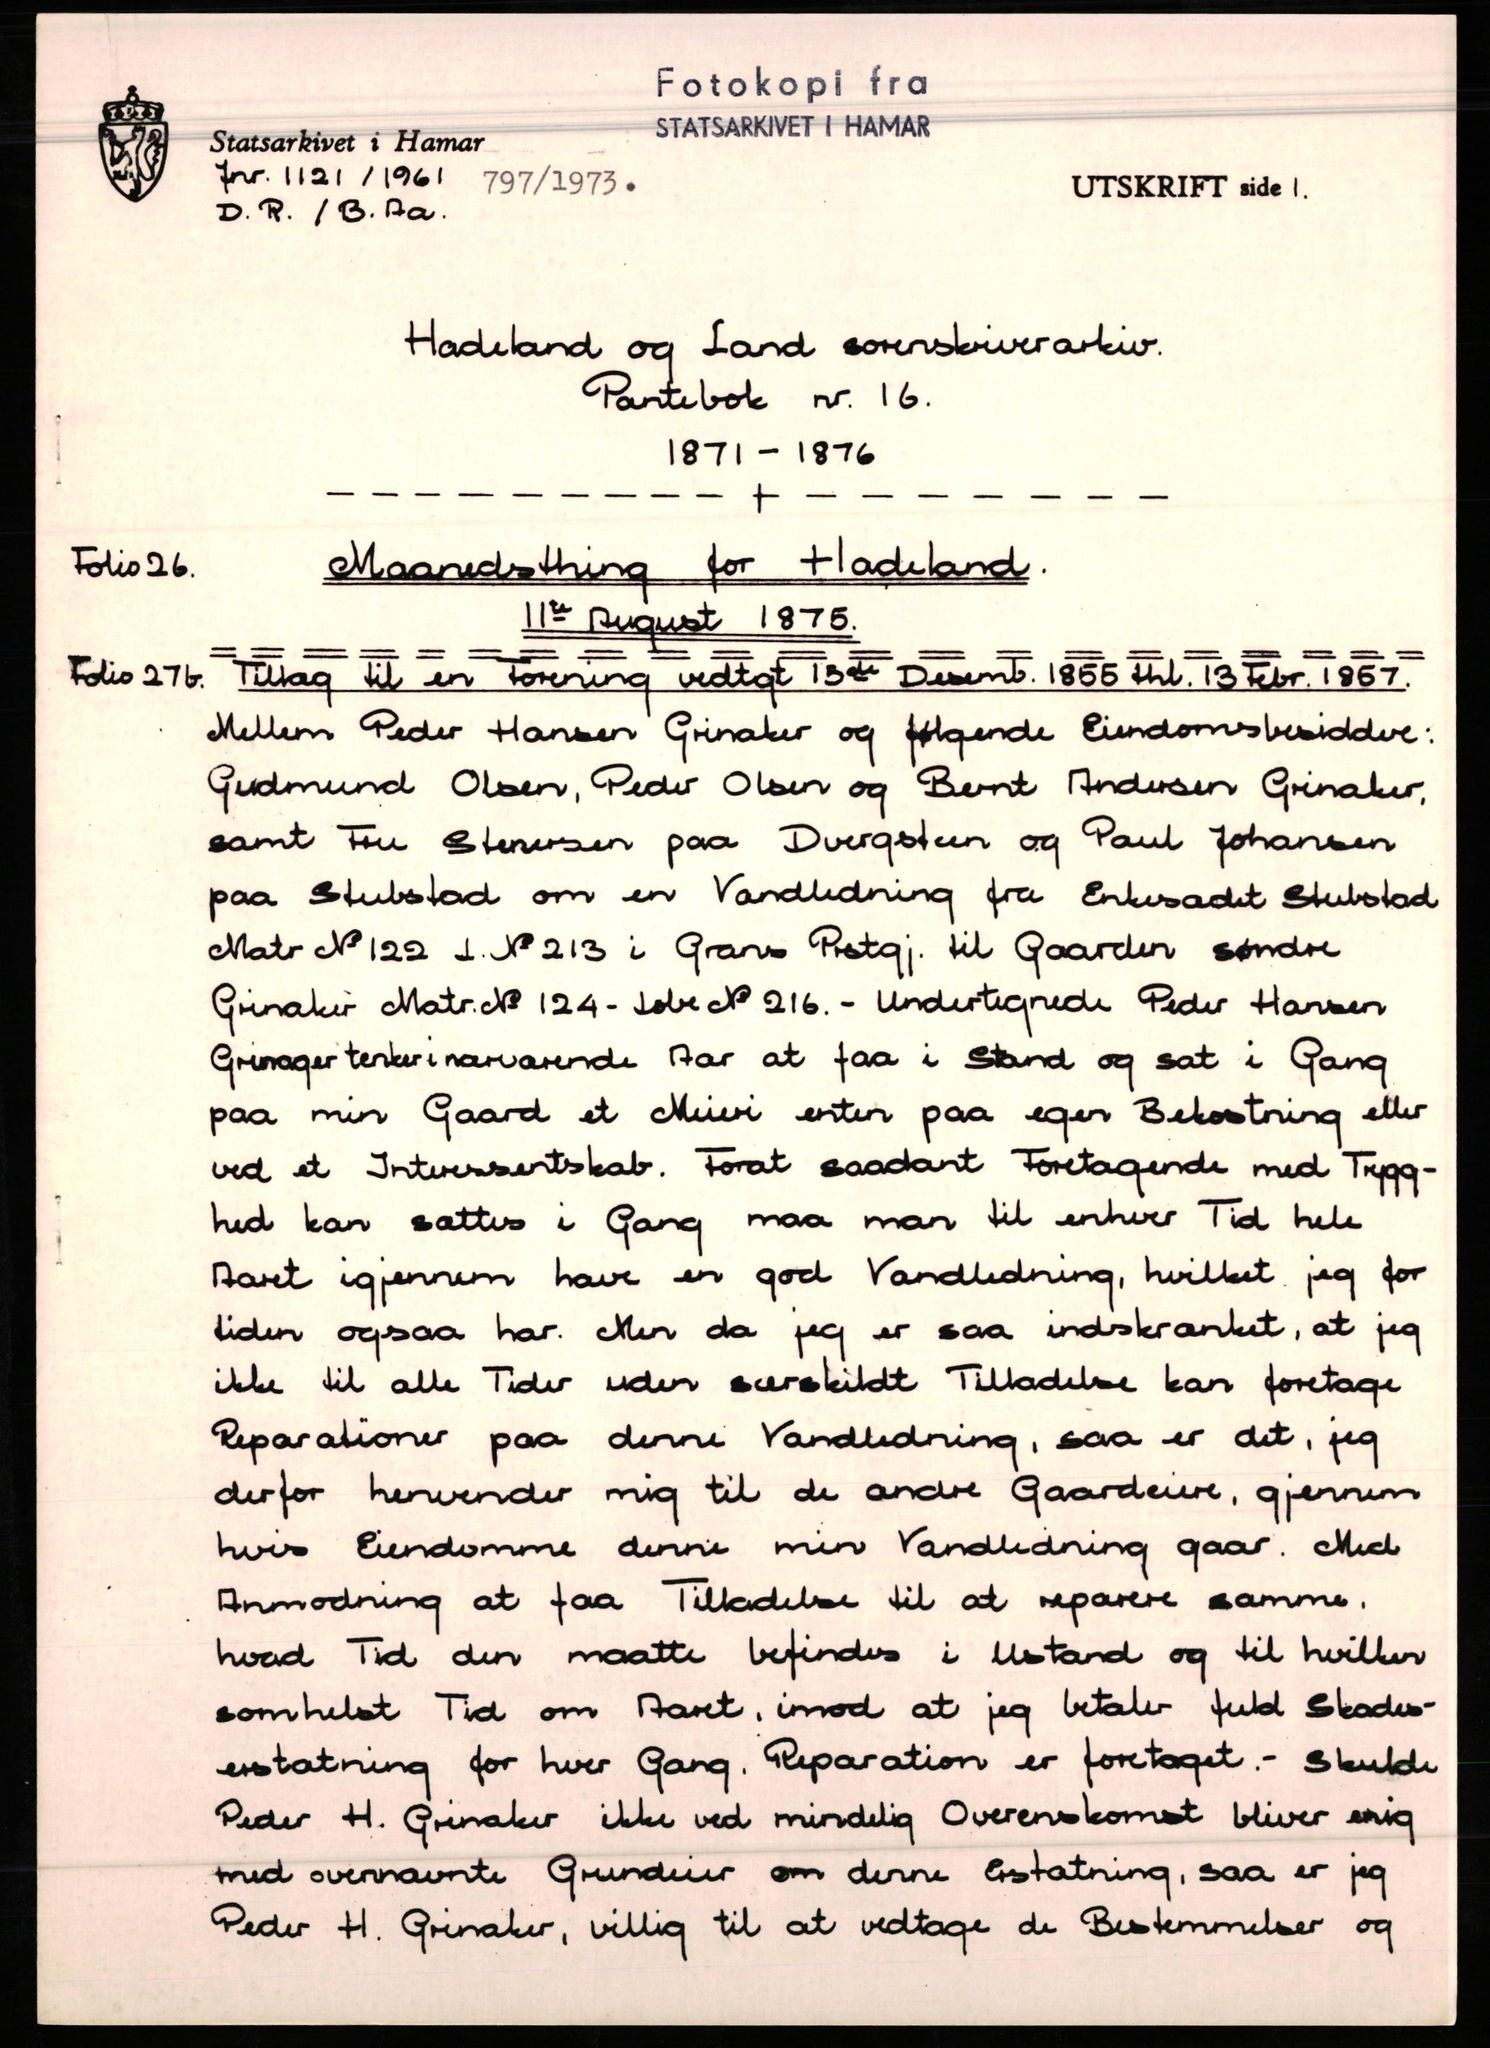 Fotokopi fra
STATSARKIVET I HAMAR
Statsarkivet i Hamar
Jnr. 1121 / 1961 797/1973.
D. R. / B. Aa.
UTSKRIFT side 1.
Hadeland og Land sorenskriverarkiv.
Pantebok nr. 16.
1871 - 1876
Folio 26. Maanedsthing for Hadeland.
11te August 1875.
Folio 27b. Tillæg til en Forening vedtgt 13de Desemb. 1855 thl. 13 Febr. 1857.
Mellem Peder Hansen Grinaker og følgende Eiendomsbesiddere:
Gudmund Olsen, Peder Olsen og Bernt Andersen Grinaker,
samt Fru Stenersen paa Dvergsteen og Paul Johansen
paa Stubstad om en Vandledning fra Enkesædet Stubstad
Matr No 122 L. No 213 i Grans Prstgj. til Gaarden søndre
Grinaker Matr. No 124 - Løbe No 216. - Undertegnede Peder Hansen
Grinager tenker i nærværende Aar at faa i Stand og sat i Gang
paa min Gaard et Meieri enten paa egen Bekostning eller
ved et Interessentskab. Forat saadant Foretagende med Tryg-
hed kan sættes i Gang maa man til enhver Tid hele
Aaret igjennem have en god Vandledning, hvilket jeg for
tiden ogsaa har. Men da jeg er saa indskrænket, at jeg
ikke til alle Tider uden særskildt Tilladelse kan foretage
Reparationer paa denne Vandledning, saa er det, jeg
derfor henvender mig til de andre Gaardeiere, gjennem
hvis Eiendomme denne min Vandledning gaar. Med
Anmodning at faa Tilladelse til at reparere samme,
hvad Tid den maatte befindes i Ustand og til hvilken
somhelst Tid om Aaret, imod at jeg betaler fuld Skades-
erstatning for hver Gang, Reparation er foretaget. - Skulde
Peder H. Grinaker ikke ved mindelig Overenskomst bliver enig
med overnævnte Grundeier om denne Erstatning, saa er jeg
Peder H. Grinaker, villig til at vedtage de Bestemmelser og